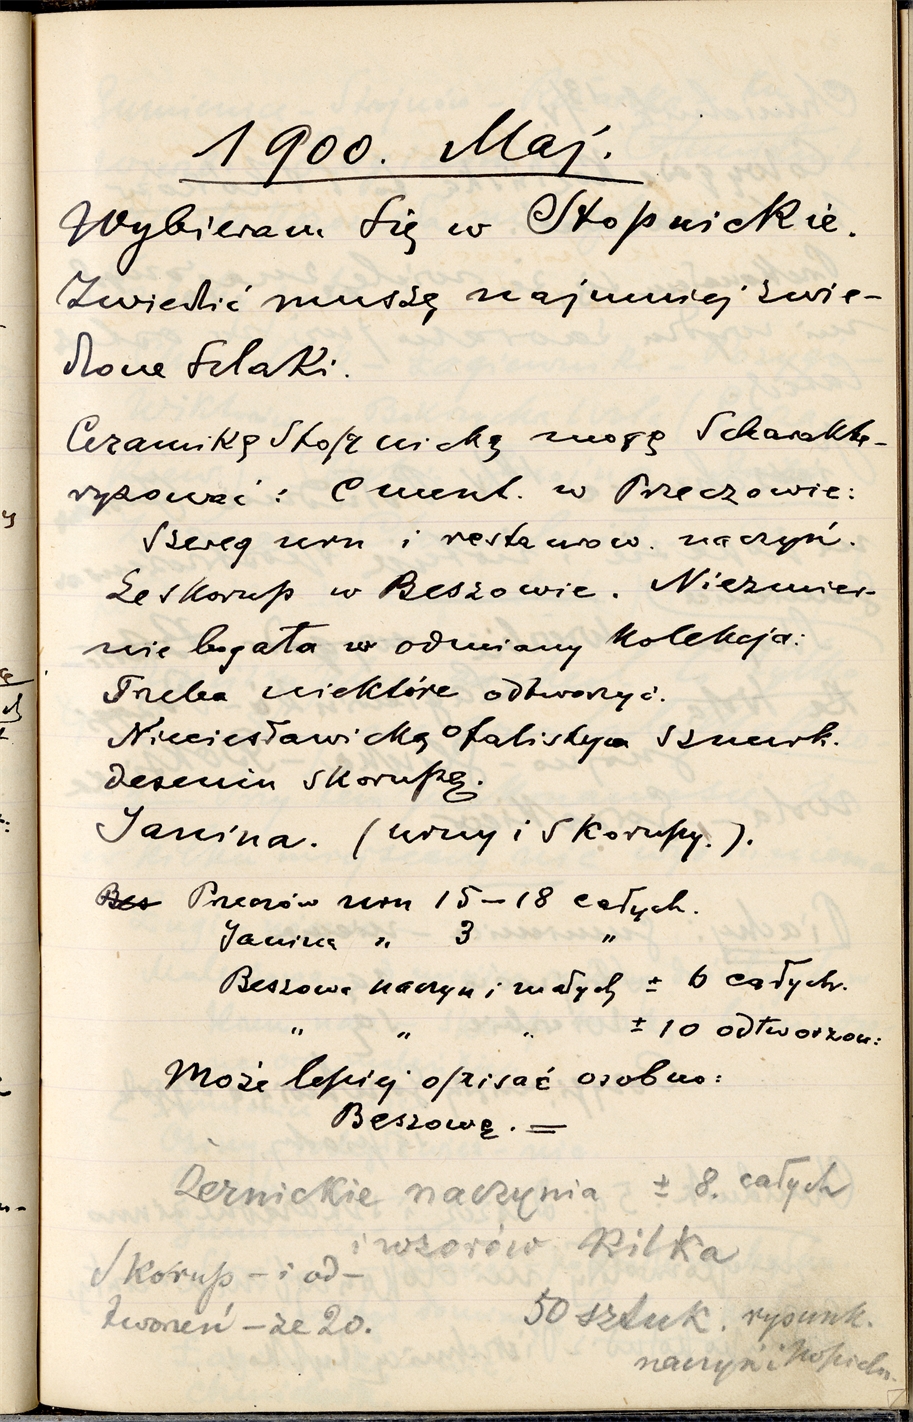 1900. Maj.
Wybieram się w Stopnickie.
Zwiedzić muszę najmniej zwie-
dzone szlaki.
Ceramikę Stopnicką mogę scharakte-
ryzować: Cment. w Przeczowie:
Szereg urn i restaurow. naczyń.
Ze skorup w Beszowie. Niezmier-
nie bogata w odmiany kolekcja:
Trzeba niektóre odtworzyć.
Nieciesławicką o falistym sznurk.
deseniu skorupę.
Janina. (urny i skorupy.).
Bes Przeczów urn 15–18 całych.
Janina " 3 "
Beszowa naczyń i małych ± 6 całych.
" " " ± 10 odtworzon:
Może lepiej opisać osobno:
Beszowę. =
Żernickie naczynia ± 8. całych
i wzorów kilka
Skorup – i od-
tworzeń – ze 20.
50 sztuk. rysunk.
naczyń i